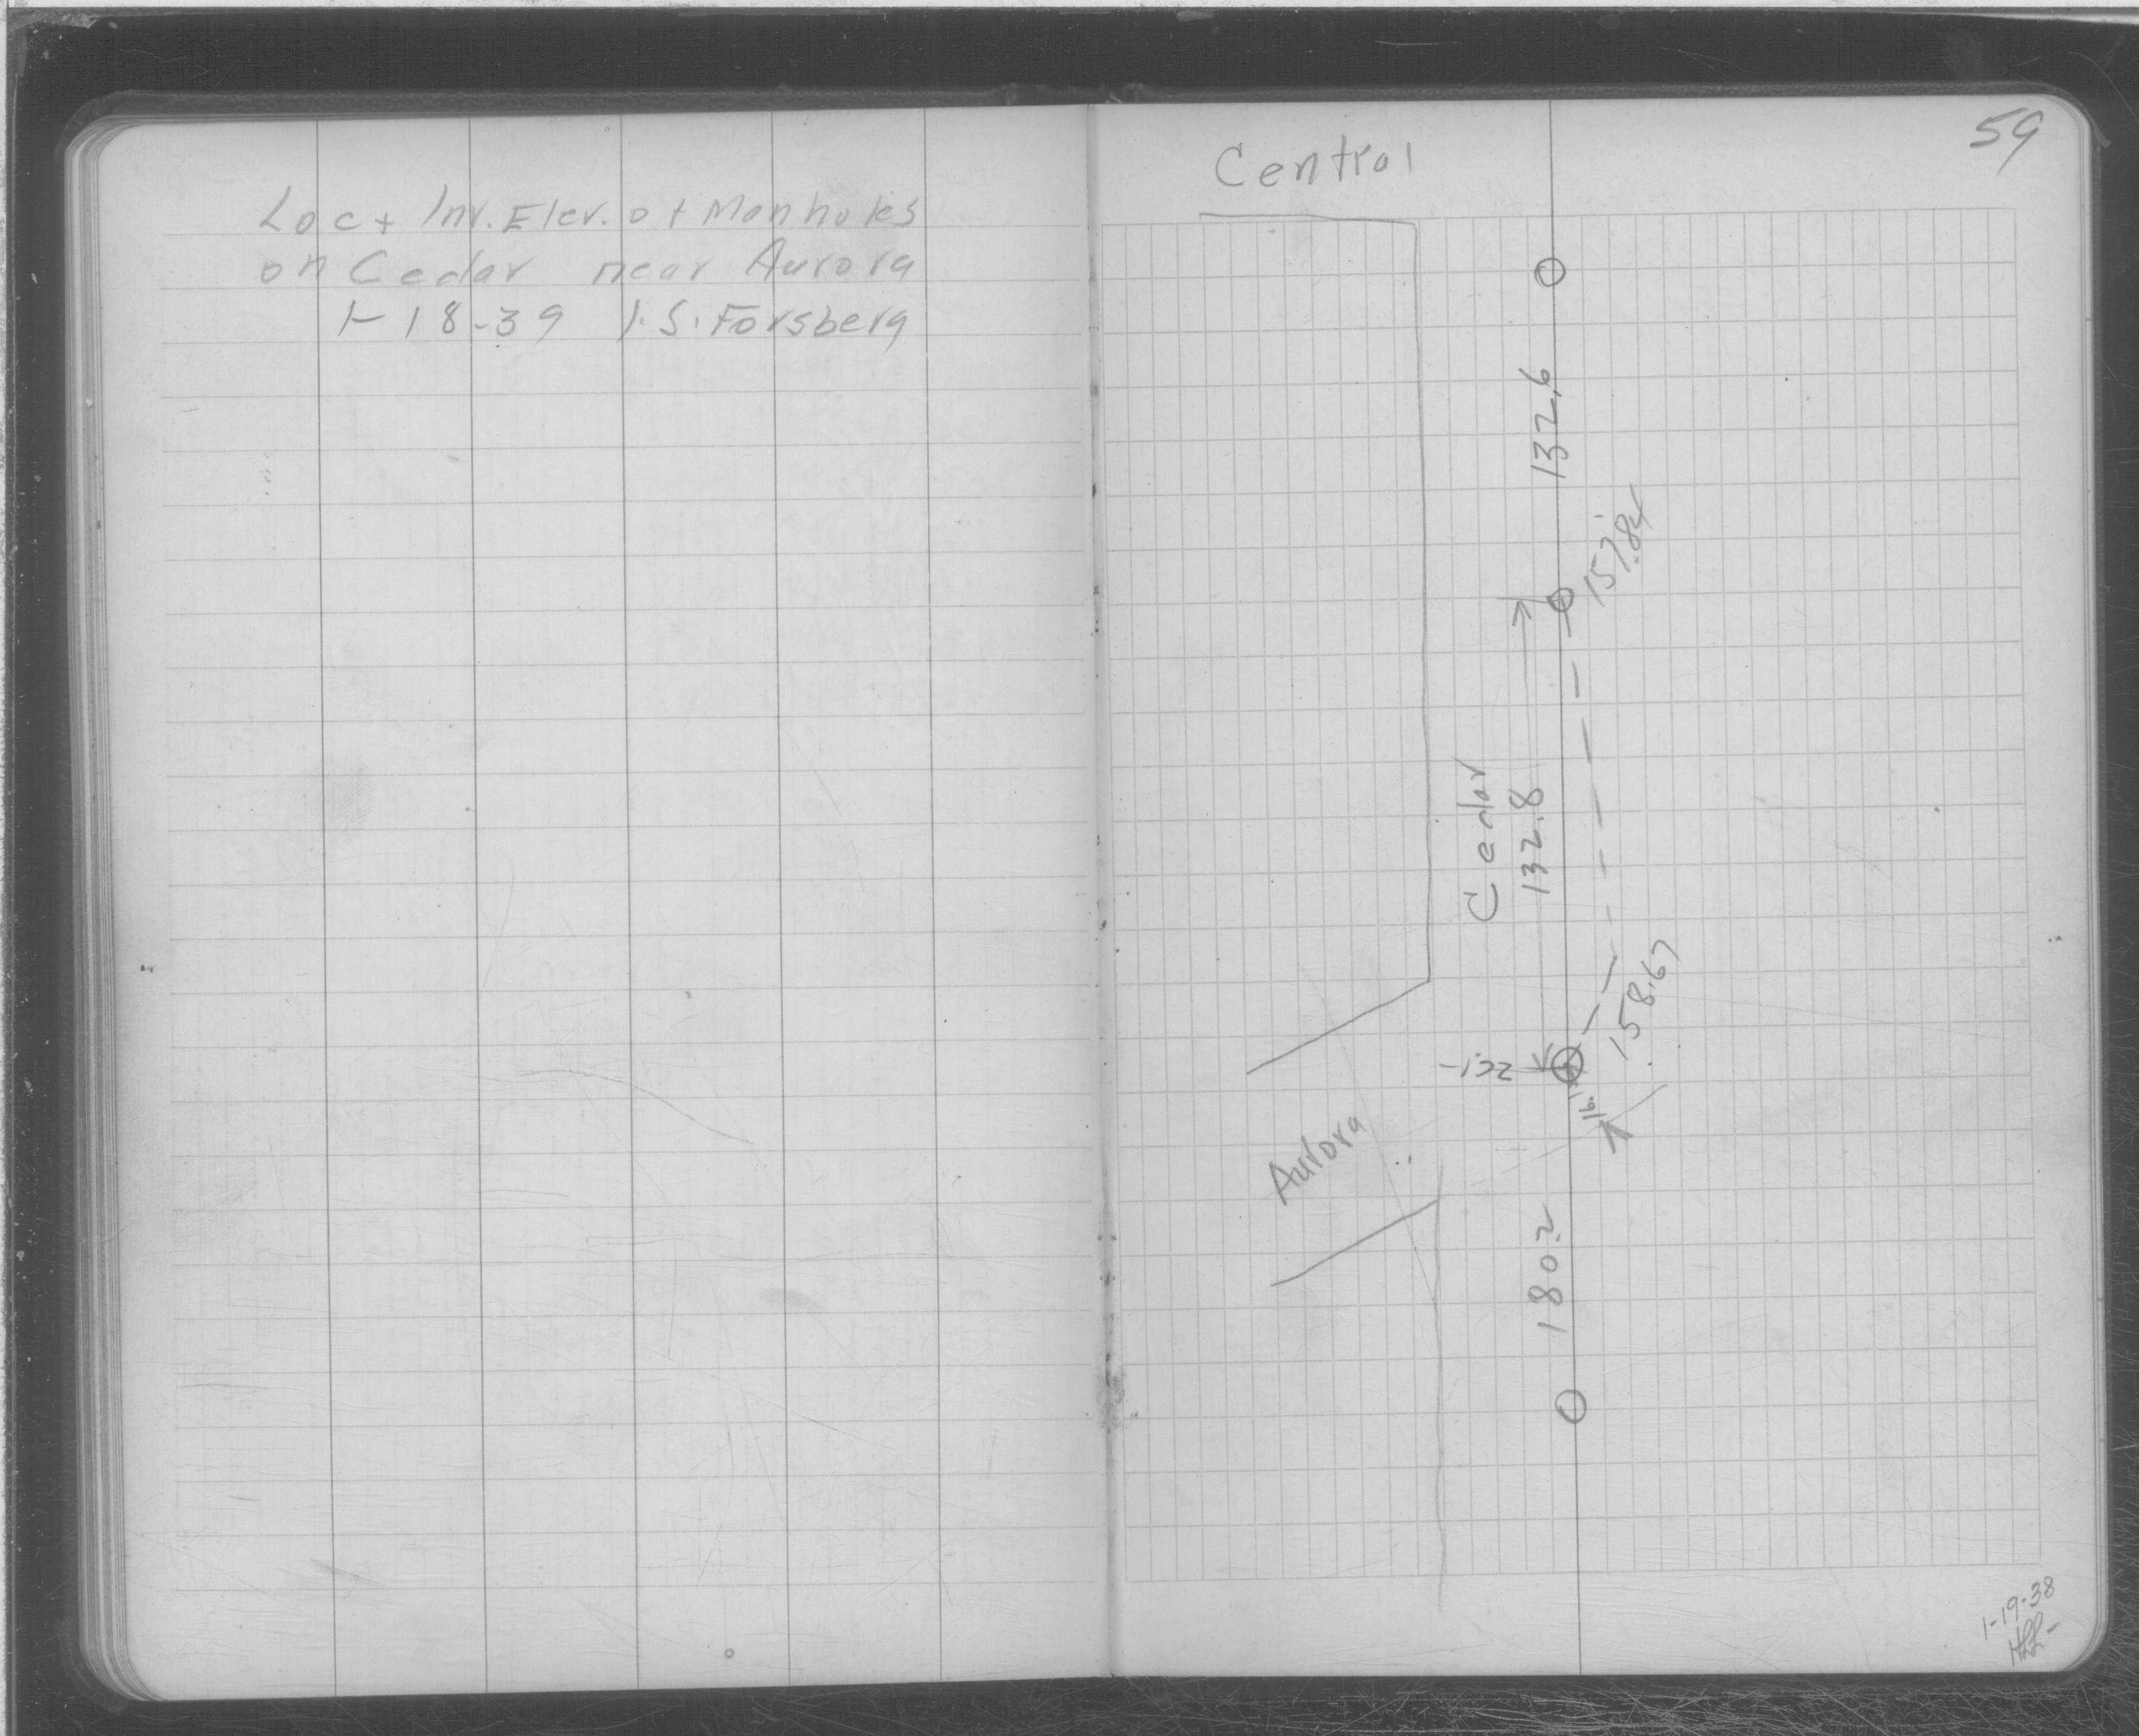 Loc + Inv. Elev. of Manholes
on Cedar near Aurora
1-18-39 I.S. Forsberg
59
Central
132.6
157.84
Cedar
132.8
158.67
-132
16.1
Aurora
180.2
1-19-38